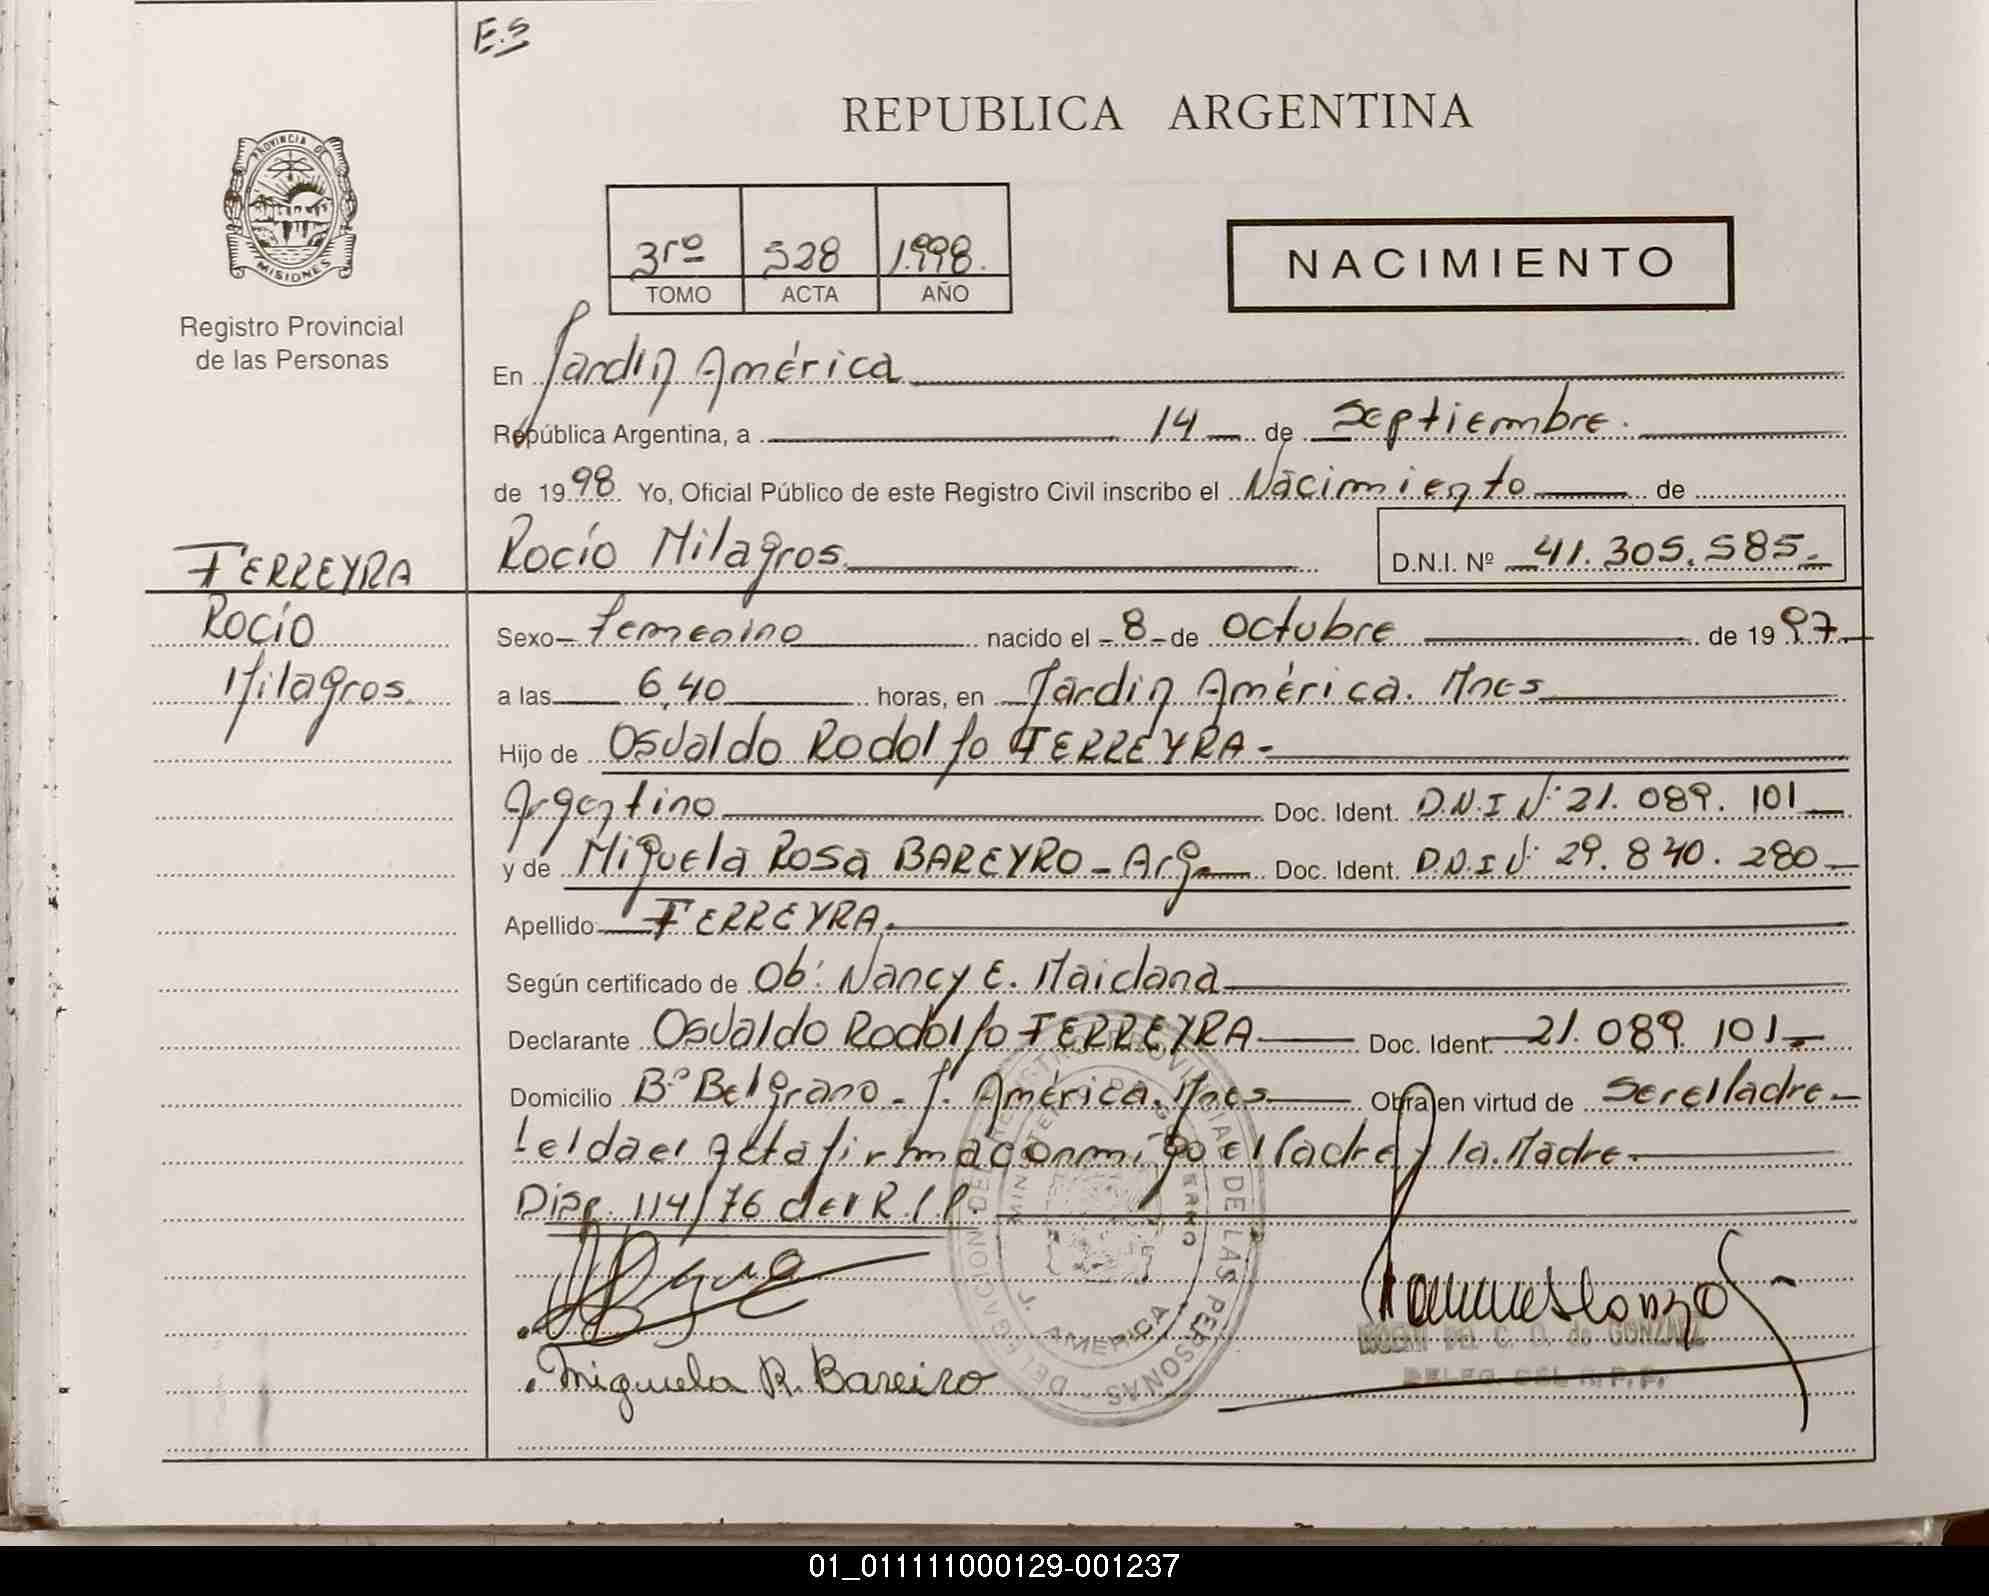 E.S
REPUBLICA ARGENTINA
PROVINCIA DE
MISIONES
Registro Provincial
de las Personas
3rº 528 1.998.
TOMO ACTA AÑO
NACIMIENTO
En Jardín América
República Argentina, a 14 de Septiembre.
de 1998 Yo, Oficial Público de este Registro Civil inscribo el Nacimiento de
Rocío Milagros D.N.I. Nº 41.305.585.
FERREYRA
Rocío
Milagros.
Sexo Femenino nacido el 8 de Octubre de 1997
a las 6,40 horas, en Jardín América. Mnes
Hijo de Osvaldo Rodolfo FERREYRA
Argentino Doc. Ident. D.N.I Nº 21.089.101
y de Miguela Rosa BAREYRO - Arg. Doc. Ident. D.N.I Nº 29.840.280
Apellido FERREYRA.
Según certificado de Ob: Nancy E. Maidana
Declarante Osvaldo Rodolfo FERREYRA Doc. Ident. 21.089.101
Domicilio Bº Belgrano - J. América. Mnes Obra en virtud de Ser el Padre
Leída el Acta firma conmigo el Padre y la Madre.
Disp. 114/76 del R.P.P.
DELEGACION DEL REGISTRO PROVINCIAL DE LAS PERSONAS
J. AMERICA
Miguela R. Bareiro
C. D. de GONZALEZ
DELEG. DEL R.P.P.
01_011111000129-001237